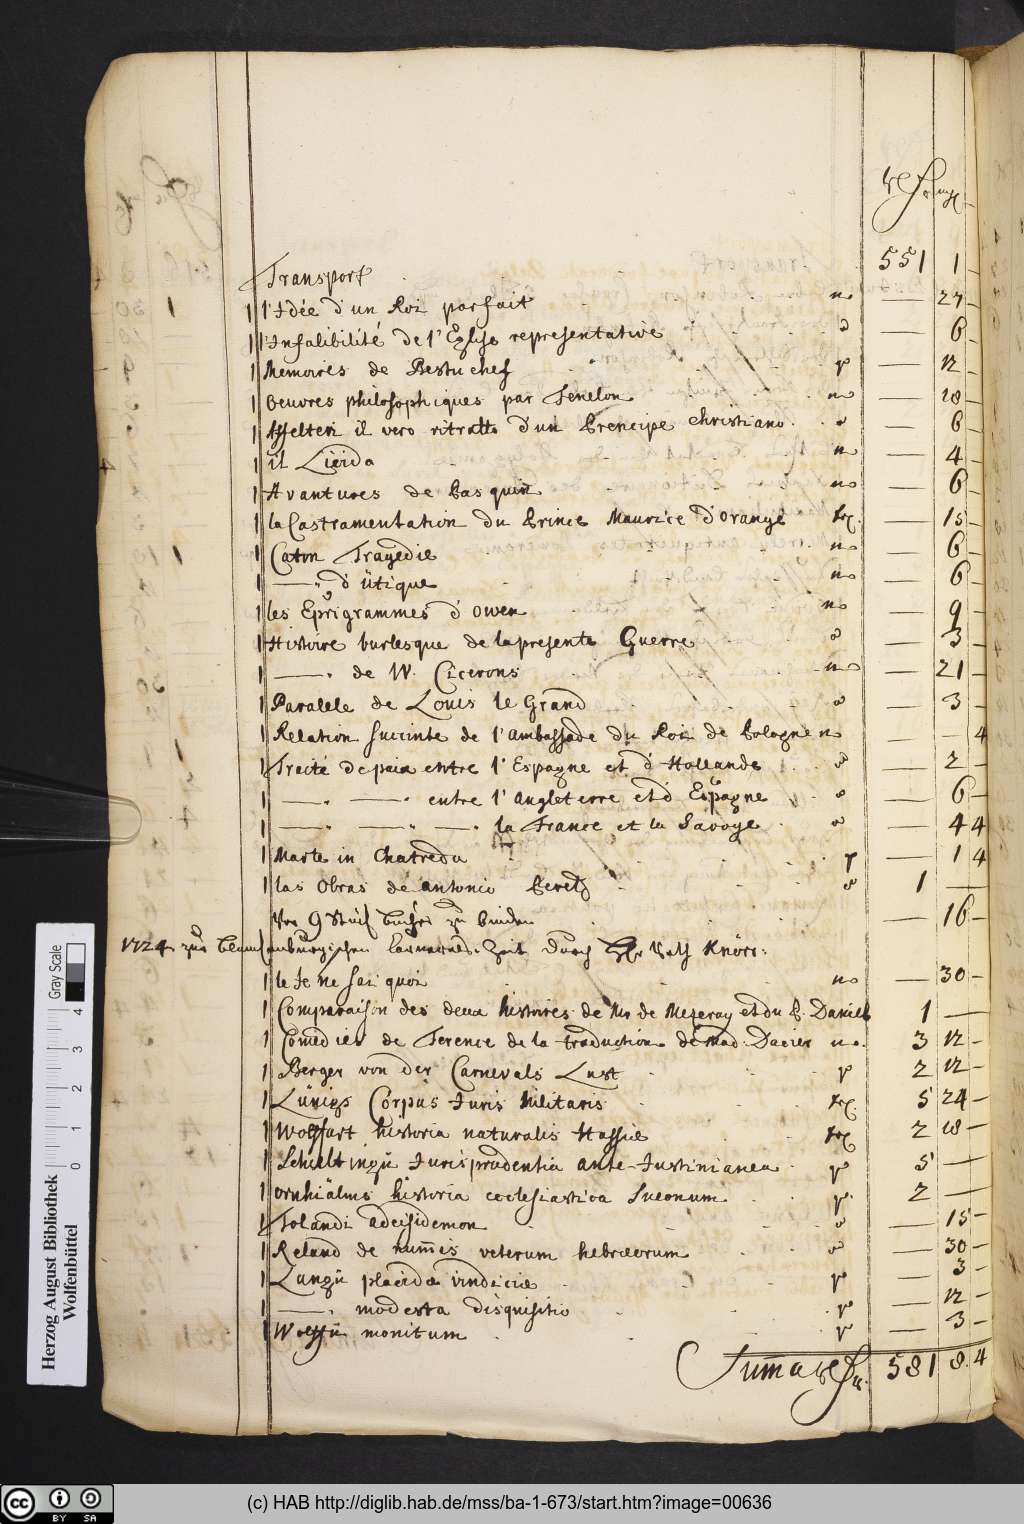 Transport 551 1 -
1 l'Idée d'un Roi parfait no — 27 -
1 l'Infalibilité de l'Eglise representative — 6 -
1 Memoires de Bestuchef — 12 -
1 Oeuvres philosophiques par Fenelon no — 18 -
1 il vero ritratto d'un Prencipe christiano — 6 -
1 il Licida no — 4 -
1 Avantures de Pasquin no — 6 -
1 la Castramentation du Prince Maurice d'Orange — 15 -
1 Caton Tragedie no — 6 -
1 — " d'ütique no — 6 -
1 les Epigrammes d'Owen no — 9
1 Histoire burlesque de la presente Guerre — 3 -
1 — " de W. Cicerons no — 21 -
1 Paralele de Louis le Grand — 3 -
1 Relation succinte de l'ambassade du Roi de Pologne no — — 4
1 Traité de paix entre l'Espagne et d'Hollande — 2 -
1 — " — " entre l'Angleterre et d'Espagne — 6 -
1 — " — " — " la France et la Savoye — 4 4
1 Marte in — 1 4
1 las Obras de antonio Perez 1 —
Vor 9 Stück Bücher zu binden — 16 -
1724 zur Zeit durch Knorr:
1 le Je ne sai quoi no — 30 -
1 Comparaison des deux histoires de Mr de Mezeray et du P. Daniel 1 —
1 Comedies de Terence de la traduction de Mad: Dacier no. 3 12 -
1 Berger von der Carnevals Lust 2 12 -
1 Lünigs Corpus Juris Militaris 5 24 -
1 Wolffart historia naturalis Hassiæ 2 18 -
1 Schultingii Jurisprudentia ante-Justinianea 5 —
1 ornhiälms historia ecclesiastica Sueonum 2 —
1 Tolandi adeisidemon — 15 -
1 Reland de num̄is veterum hebræorum — 30 -
1 Langii placidæ vindiciæ — 3 -
1 — " modesta disquisitio — 12 -
1 Wolffii monitum — 3 -
Sum̄a 581 8. 4
Gray Scale
0 1 2 3 4
Herzog August Bibliothek
Wolfenbüttel
cc BY SA
(c) HAB http://diglib.hab.de/mss/ba-1-673/start.htm?image=00636